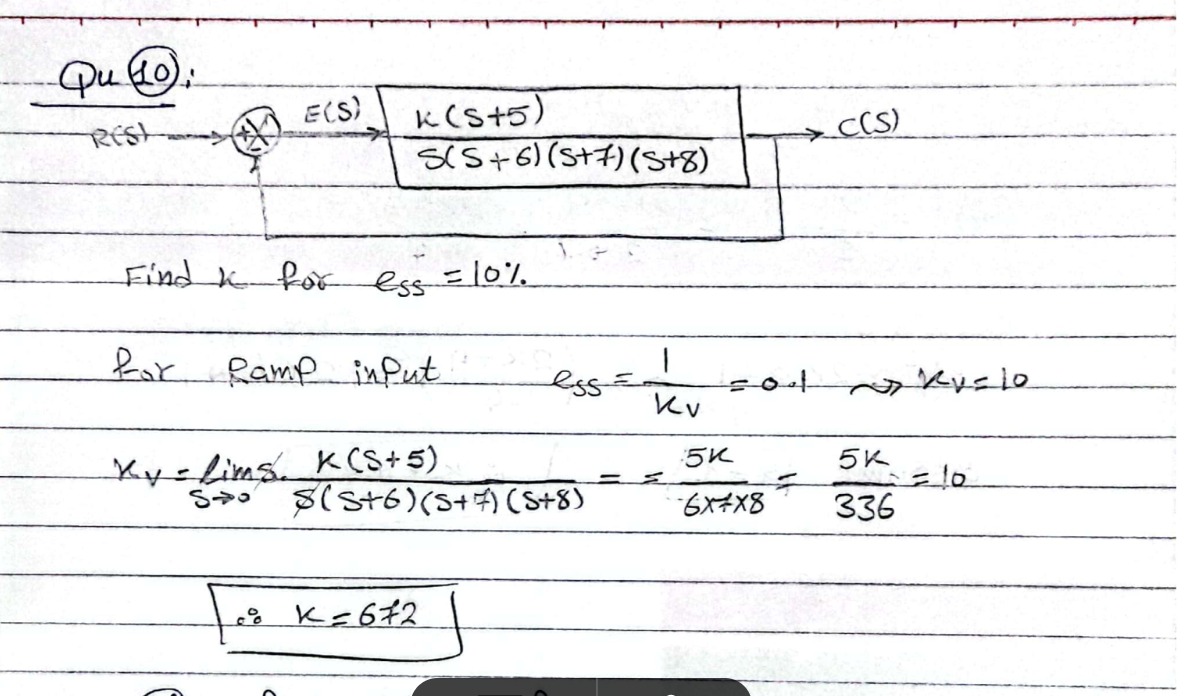 Qu 10:
R(S) E(S) K(S+5) C(S)
S(S+6)(S+7)(S+8)
Find K for ess = 10%
for Ramp input ess = 1/Kv = 0.1 ⇝ Kv = 10
Kv = lim S→0 S. K(S+5)/S(S+6)(S+7)(S+8) = = 5K/6×7×8 = 5K/336 = 10
∴ K = 672